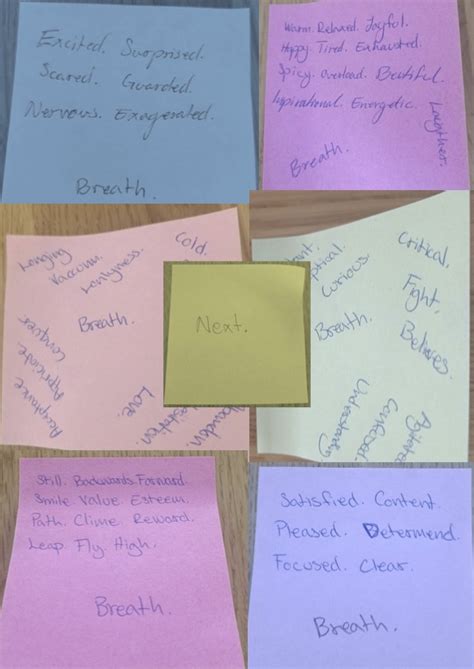 Excited. Surprised.
Scared. Guarded.
Nervous. Exagerated.
Breath.
Warm. Relaxed. Joyful.
Happy. Tired. Exhausted.
Spicy. Overload. Beatiful.
Inpirational. Energetic.
Laughter.
Breath.
Longing
Vaccum.
Lonlyness.
Cold.
Breath.
Conquer
Apriciate.
Acceptance
Love.
Critical.
Curious.
Fight.
Breath.
Believes.
Next.
Still. Backwards. Forward.
Smile. Value. Esteem.
Path. Clime. Reward.
Leap. Fly. High.
Breath.
Satisfied. Content.
Pleased. Determend.
Focused. Clear.
Breath.